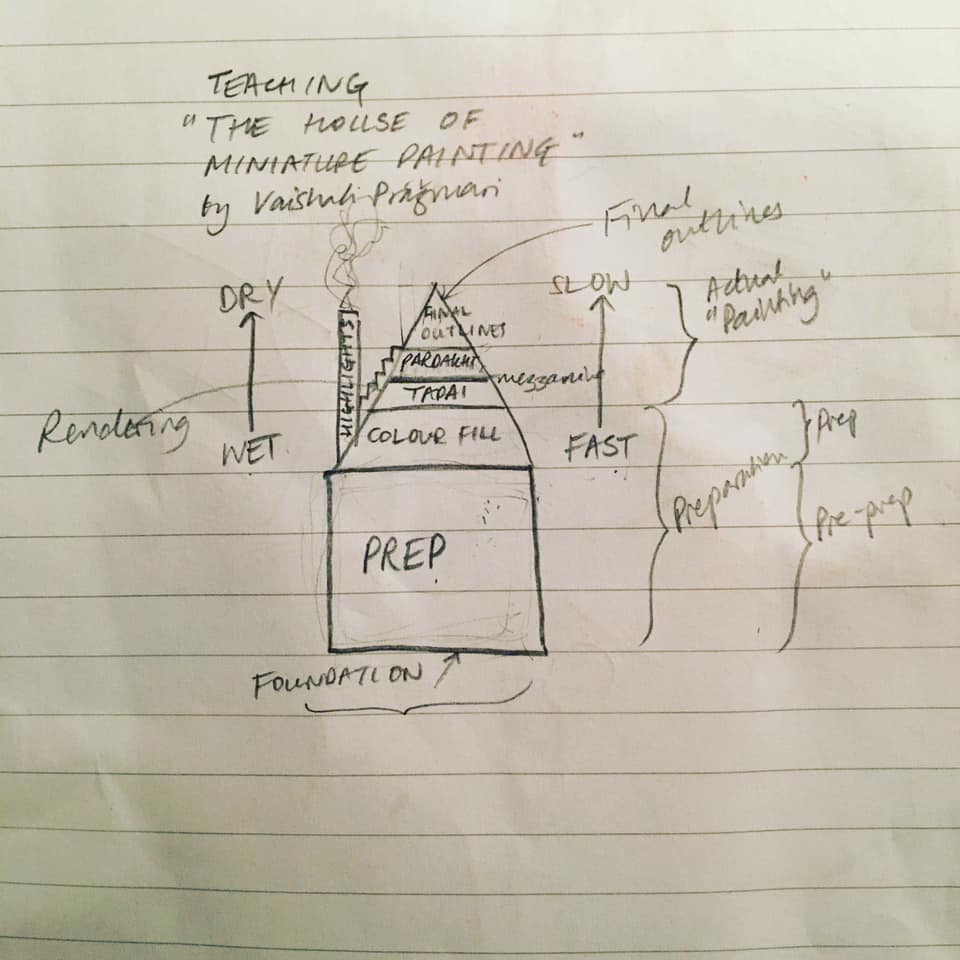 TEACHING
"THE HOUSE OF
MINIATURE PAINTING"
by Vaishali Prazmari
Final
outlines
DRY
SLOW
Actual
"Painting"
FINAL
OUTLINES
HIGHLIGHTS
PARDAKHT
mezzanine
TAPAI
Rendering
WET
COLOUR FILL
FAST
Prep
Preparation
Pre-prep
PREP
FOUNDATION